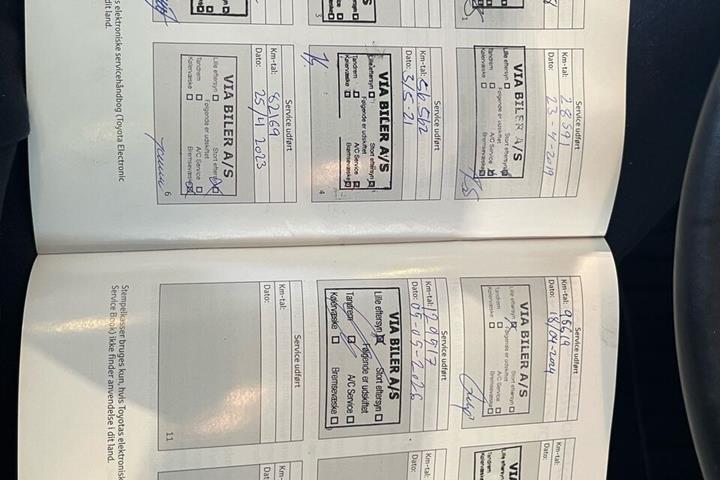 Service udført
Km-tal: 28591
Dato: 23-4-2019
VIA BILER A/S
Lille eftersyn
Stort eftersyn
Følgende er udskiftet
Tandrem
A/C Service
Kølervæske
Bremsevæske
Service udført
Km-tal:
Dato: 3/5-21
VIA BILER A/S
Lille eftersyn
Stort eftersyn
Følgende er udskiftet
Tandrem
A/C Service
Kølervæske
Bremsevæske
4
Service udført
Km-tal: 82169
Dato: 25/4 2023
VIA BILER A/S
Lille eftersyn
Stort eftersyn
Følgende er udskiftet
Tandrem
A/C Service
Kølervæske
Bremsevæske
6
s elektroniske servicehåndbog (Toyota Electronic
dit land.
Service udført
Km-tal: 96619
Dato: 18/04-2024
VIA BILER A/S
Lille eftersyn
Stort eftersyn
Følgende er udskiftet
Tandrem
A/C Service
Kølervæske
Bremsevæske
Service udført
Km-tal:
Dato: 05-05-2026
VIA BILER A/S
Lille eftersyn
Stort eftersyn
Følgende er udskiftet
Tandrem
A/C Service
Kølervæske
Bremsevæske
Service udført
Km-tal:
Dato:
11
Km-tal:
Dato:
Km-tal:
Dato:
Km-tal:
Stempelkasser bruges kun, hvis Toyotas elektronisk
Service Book) ikke finder anvendelse i dit land.